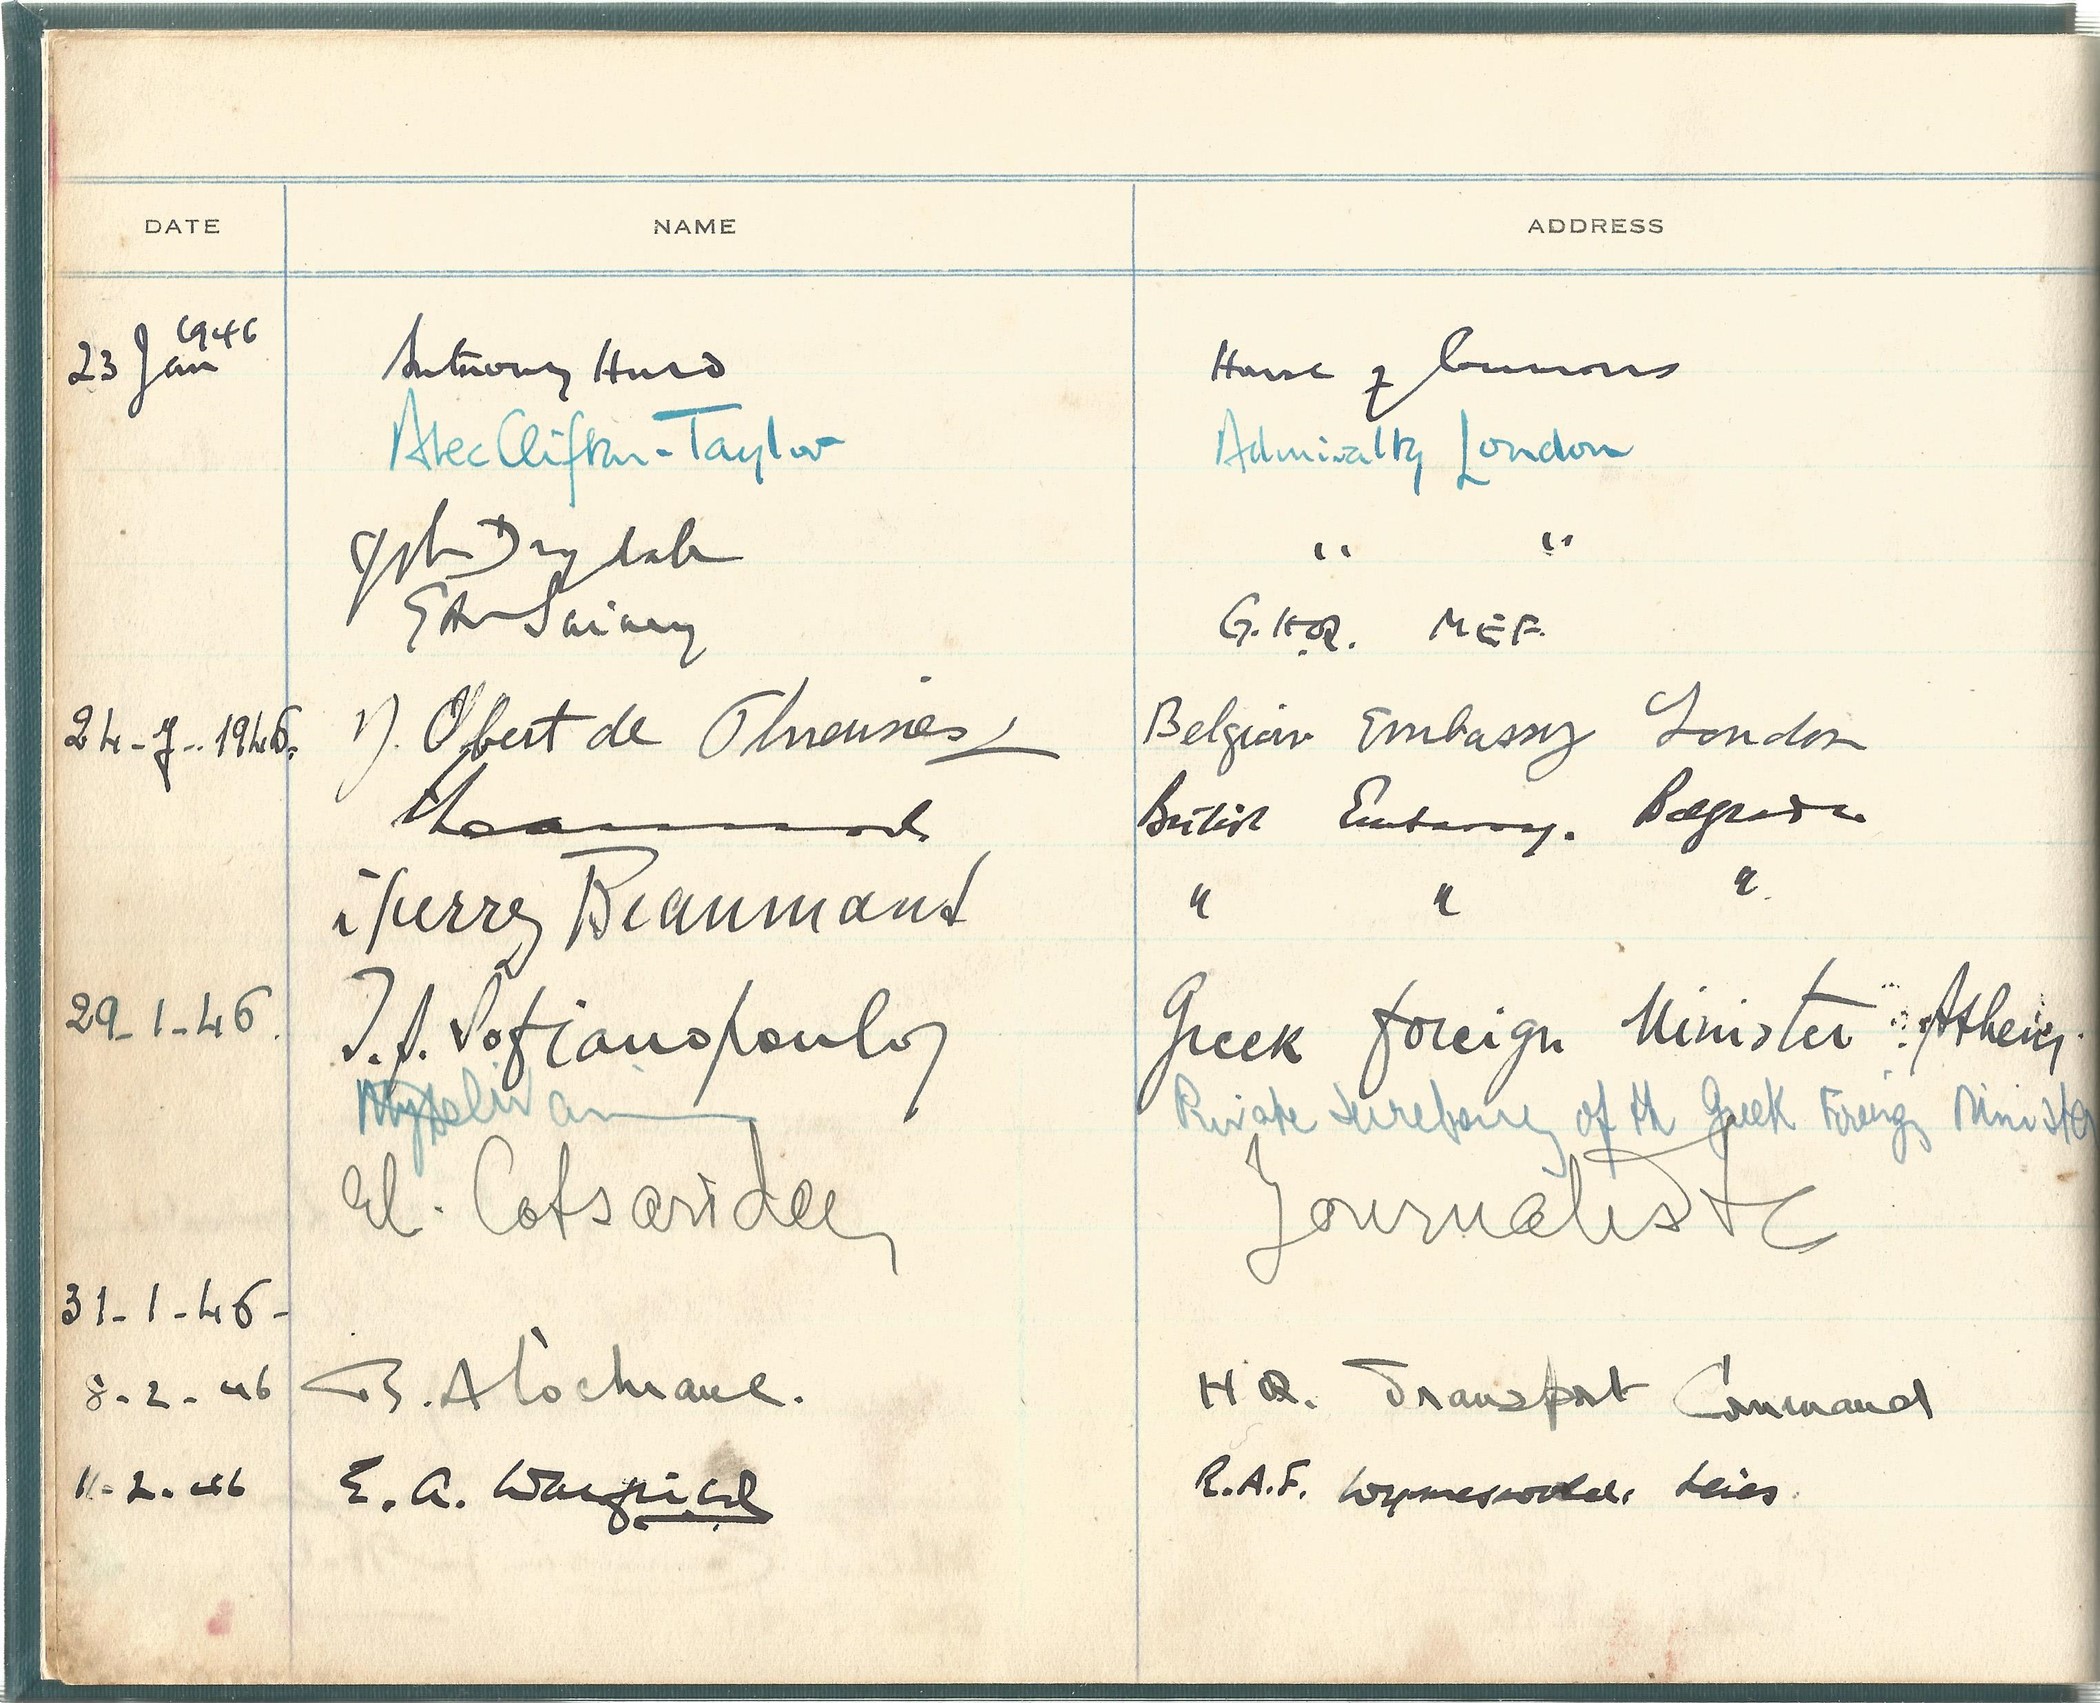 DATE NAME ADDRESS
23 Jan 1946 Anthony Hurd House of Commons
Alec Clifton-Taylor Admiralty London
John Drysdale " "
G.H.Q. MEF.
24-J-1946. Obert de Thieusies Belgian Embassy London
British Embassy. Belgrade
Beaumont " " "
29-1-46. J.A. Sofianopoulos Greek Foreign Minister Athens.
Private Secretary of the Greek Foreign Minister
El. Cotsaridas Journaliste
31-1-46-
8-2-46 R. A Cochrane. H.Q. Transport Command
11-2-46 E. A. R.A.F. Wymeswold. Leics.